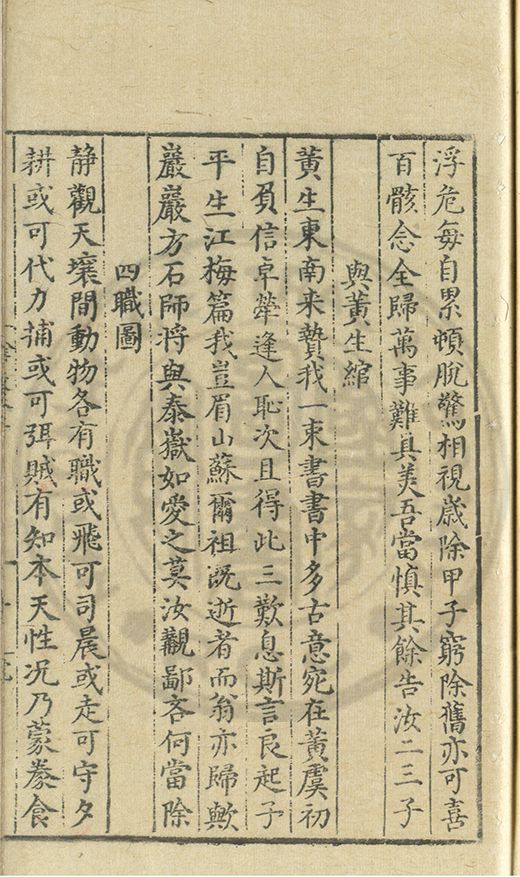 浮危每自累頓脫驚相視歲除甲子窮除舊亦可喜
百骸念全歸萬事難具美吾當慎其餘告汝二三子
與黃生綰
黃生東南来贄我一束書書中多古意宛在黃虞初
自負信卓犖逢人恥次且得此三歎息斯言良起予
平生江梅篇我豈眉山蘇爾祖既逝者而翁亦歸歟
巖巖方石師将與泰嶽如愛之莫汝觀鄙吝何當除
四職圖
静觀天壤間動物各有職或飛可司晨或走可守夕
耕或可代力捕或可弭賊有知本天性况乃蒙豢食